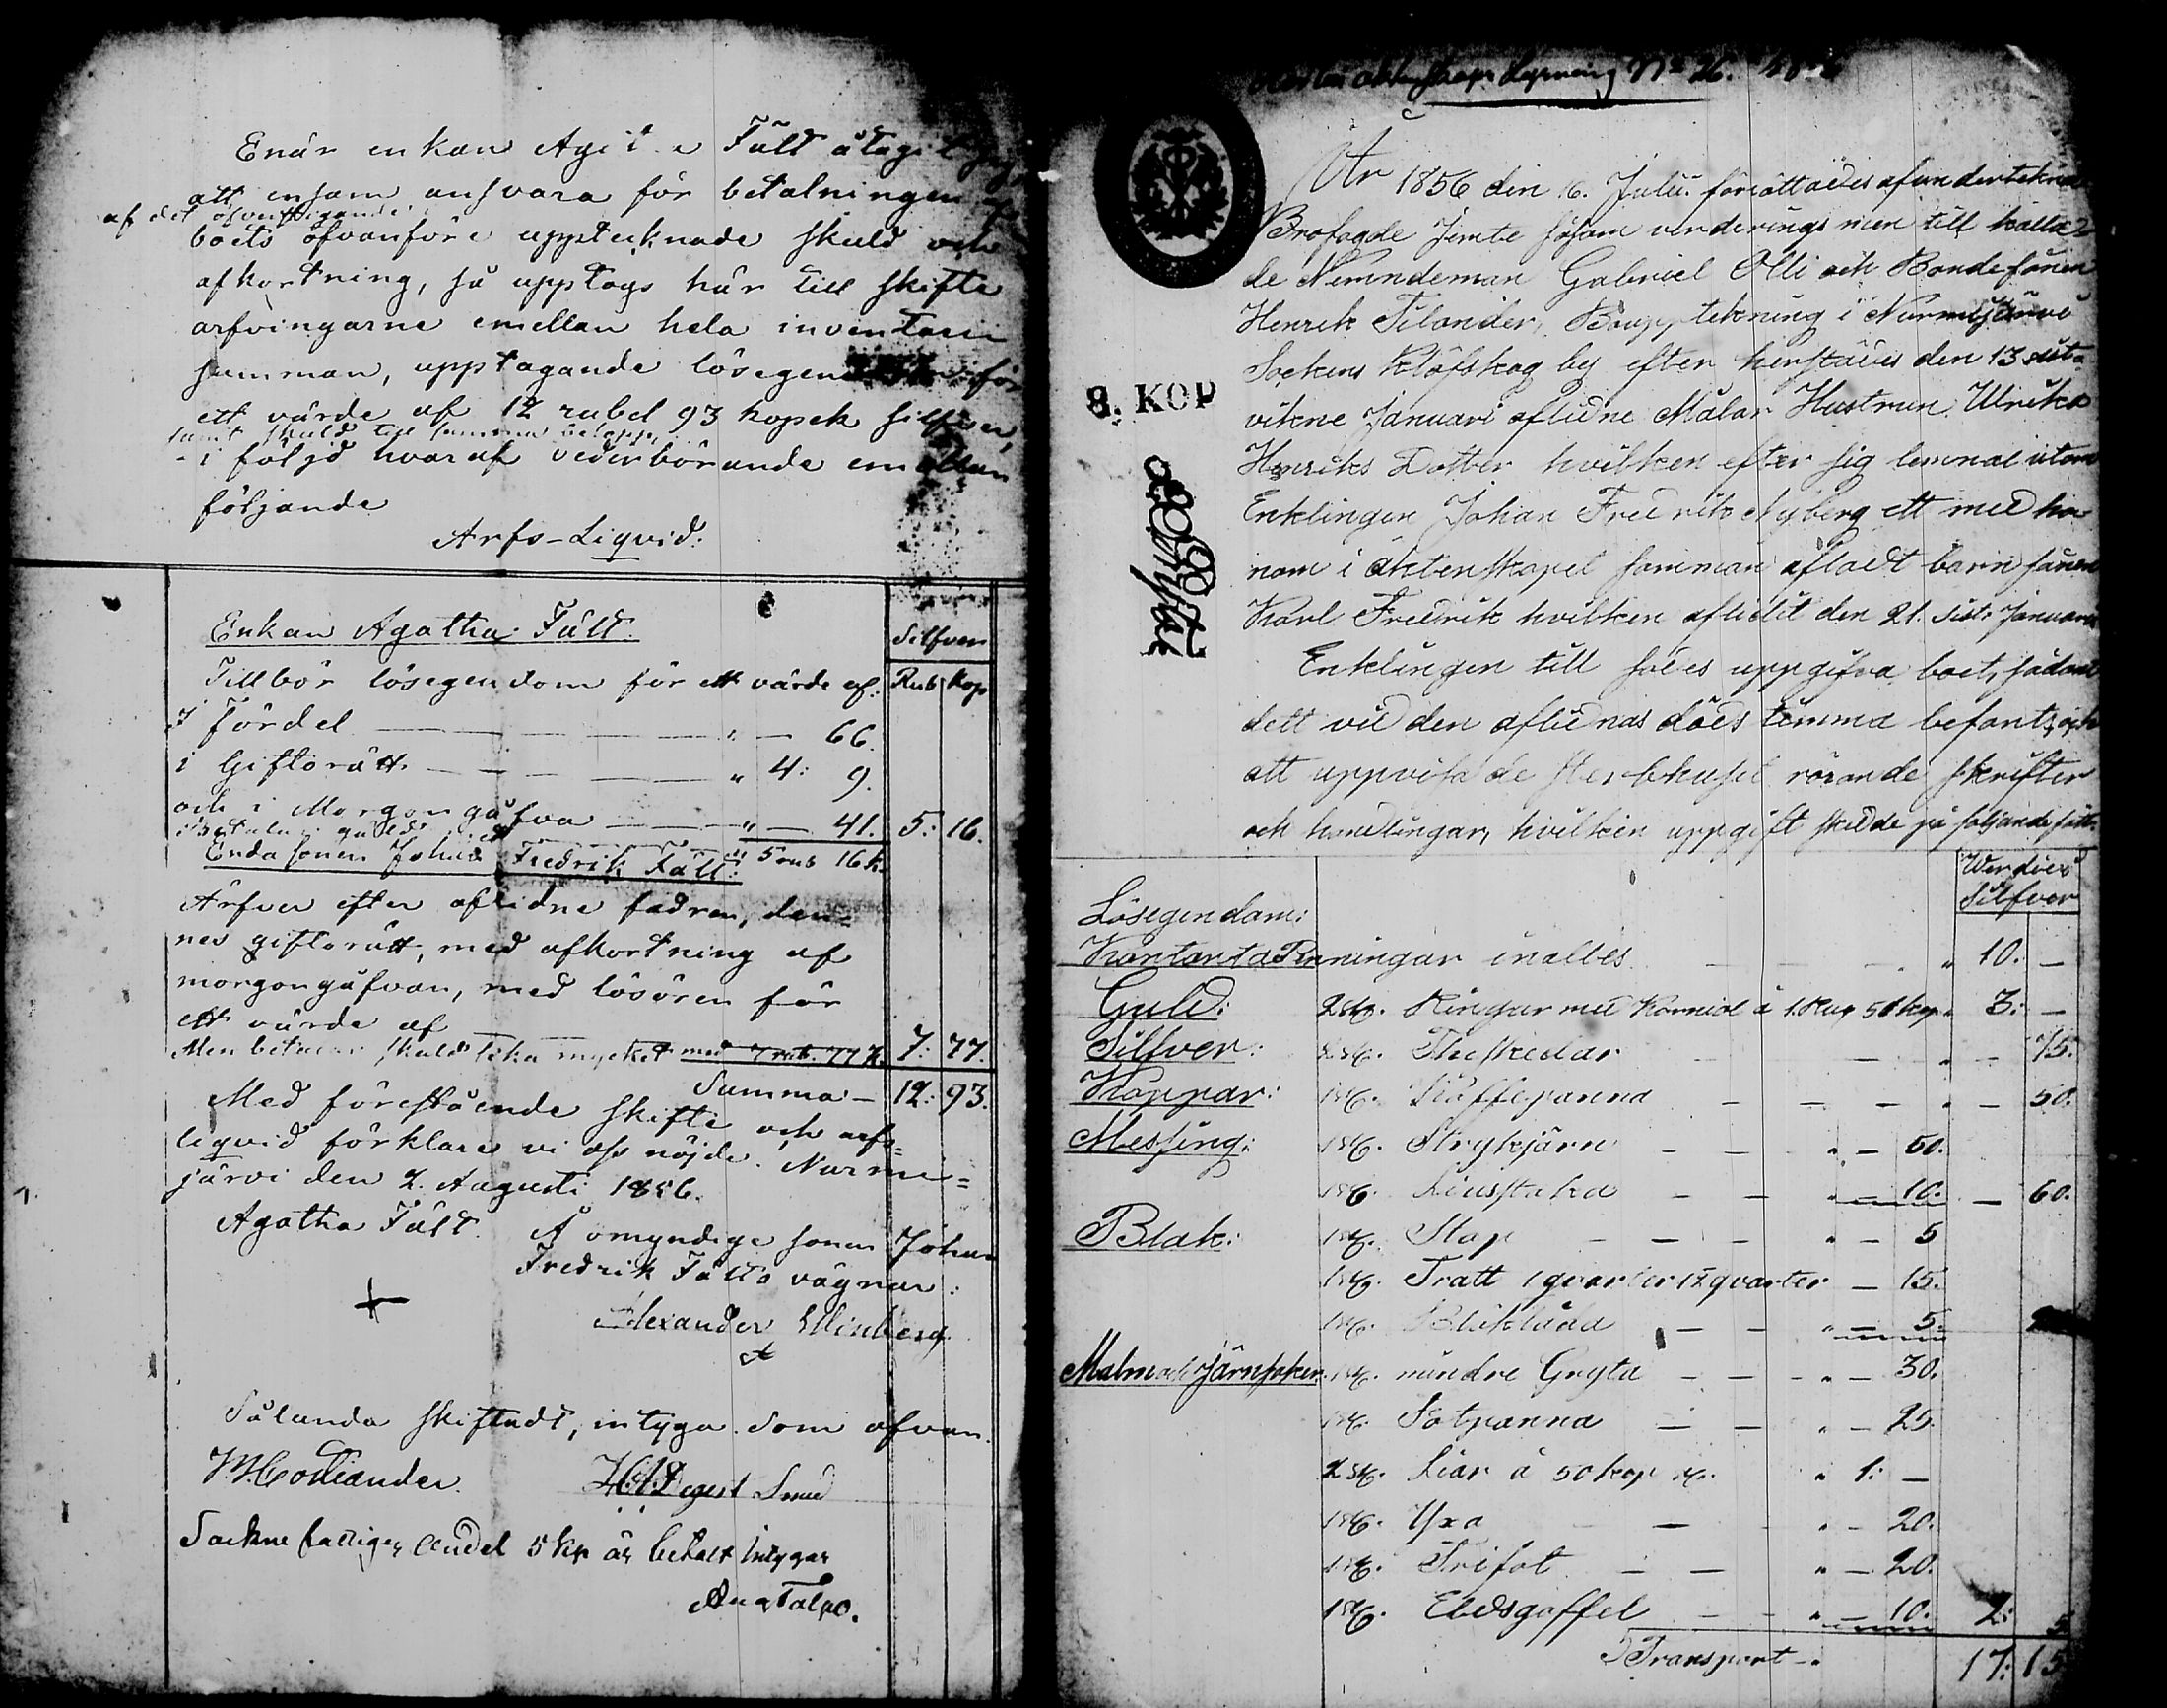 Enär enkan Fält åtagit
att ensam ansvara för betalningen
af det öfverstigande
boets ofvanföre upptecknade skuld och
afkortning, så upptogs här till skifte
arfvingarne emellan hela inventarii
summan, upptagande lösegen för
ett värde af 12 rubel 93 kopek silfver,
samt skuld till samma belopp
i följd hvaraf vederbörande emellan
följande
Arfs-Liqvid:
Enkan Agatha Fält.
Silfver
Tillbör lösegendom för ett värde af: Rub Kop
I fördel — " — 66.
i Giftorätt — " 4: 9.
och i Morgongåfva — " — 41. 5: 16.
Enda sonen Johan Fredrik Fält: 5 rub 16 k.
Ärfver efter aflidne fadren, den-
nes giftorätt, med afkortning af
morgongåfvan, med lösören för
ett värde af
Men betalar skuld lika mycket med 7 rub. 77 k. 7: 77.
Summa — 12: 93.
Med förestående skifte och arfs=
liqvid förklare vi oss nöjde. Nurmi=
järvi den 2. Augusti 1856.
Agatha Fält. Å omyndige sonen Johan
Fredrik Fälts vägnar:
Alexander
Sålunda skiftadt, intyga. Som ofvan.
Sockne fattiges Andel 5 kp är betalt Intygar
N:o 26.
År 1856 den 16. Julii förrättades af undertekna
Brofogde jemte såsom värderings män till kalla
de Nemndeman Gabriel Olli och Bondesonen
Henrik Silander, Bouppteckning i Nurmijärvi
Sockens Klöfskog by efter herstädes den 13 sist
8. KOP
vikne Januari aflidne Målar Hustrun Ulrika
Henriks Dotter hvilken efter sig lemnat utom
Enklingen Johan Fredrik Nyberg ett med ho
nom i äktenskapet samman afladt barn sonen
Karl Fredrik hvilken aflidit den 21. sist Januari
Enklingen till sades uppgifva boet, sådant
dett vid den aflidnas döds timma befants, och
att uppvisa de Sterbhuset rörande skrifter
och handlingar, hvilken uppgift skedde på följande sätt.
Silfver
Lösegendom:
Kontanta Penningar inalles — " 10. —
Guld: 2 st. Ringar med Karniol à 1. Rup 50 kop. 3: —
Silfver: 2 st. Theskedar — " — 75.
Koppar: 1 st. Kaffepanna — " — 50.
Messing: 1 st. Strykjärn — " — 50.
1 st. Ljusstaka — " — 10. — 60.
Blek: 1 st. Stop — " — 5
1 st. Tratt 1 qvarter 1 qvarter — 15.
1 st. — " — 5.
Malm och Järnsaker. 1 st. mindre Gryta — " — 30.
1 st. Panna — " — 25.
2 st. Liar à 50 kop st. " 1: —
1 st. Yxa — " — 20.
1 st. Trifot — " — 20.
1 st. Eldsgaffel — " — 10. 2: 5
Transport — " 17: 15